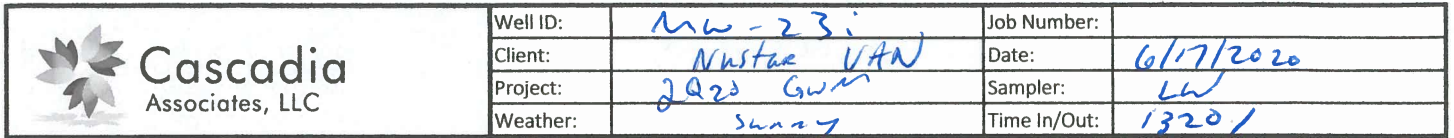 Cascadia
Associates, LLC
Well ID: MW-23i Job Number:
Client: Nustar VAN Date: 6/17/2020
Project: 2Q20 GWM Sampler: LW
Weather: Sunny Time In/Out: 1320/